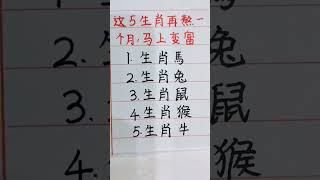 这5生肖再熬一
个月,马上变富
1.生肖馬
2.生肖兔
3.生肖鼠
4.生肖猴
5.生肖牛
鼠
猴